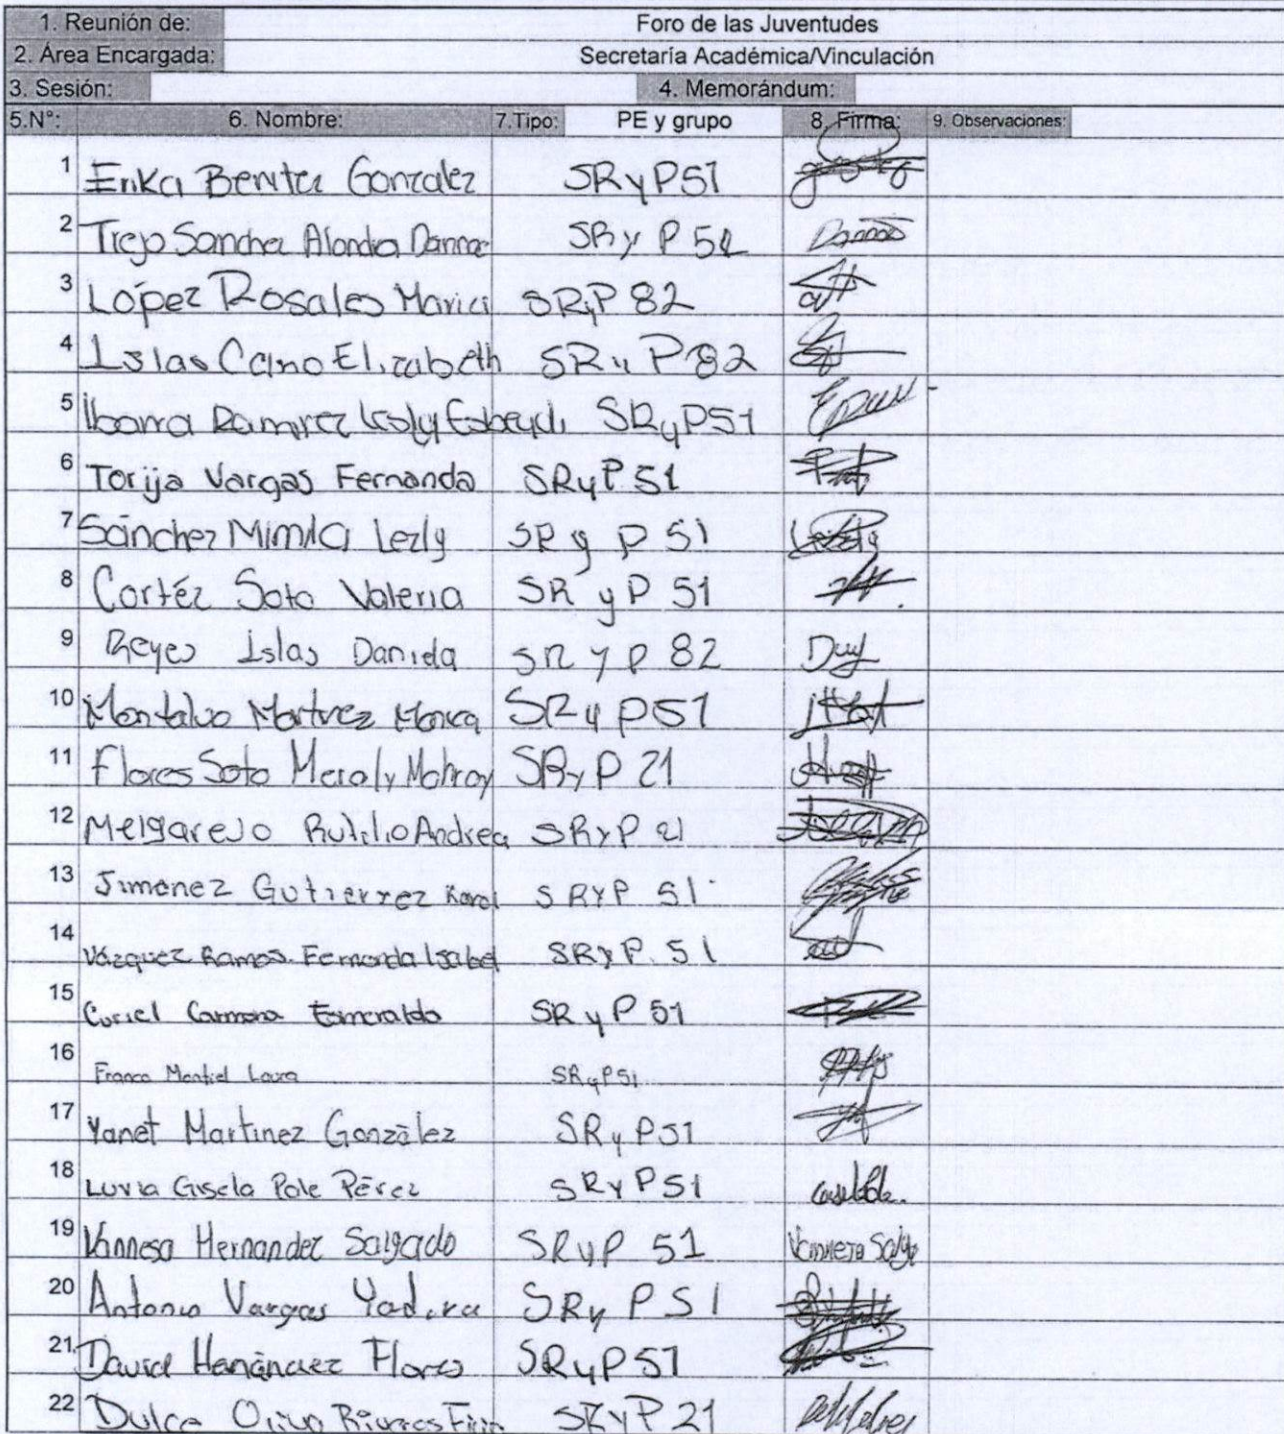 1. Reunión de: Foro de las Juventudes
2. Área Encargada: Secretaría Académica/Vinculación
3. Sesión: 4. Memorándum:
5.N°: 6. Nombre: 7.Tipo: PE y grupo 8. Firma: 9. Observaciones:
1 Erika Benitez Gonzalez SRyP51
2 Trejo Sanchez Alondra Danna SRy P 51
3 López Rosales Maria SRyP 82
4 Islas Cano Elizabeth SR y P 82
5 Ibarra Ramirez Lesly SRyP51
6 Torija Vargas Fernanda SRyP 51
7 Sánchez Mimila Lezly SR y P 51
8 Cortéz Soto Valeria SR y P 51
9 Reyes Islas Daniela SR y P 82
10 Montalvo Martinez Monica SRy P51
11 Flores Soto SRyP 21
12 Melgarejo Rutilio Andrea SRyP 21
13 Jimenez Gutierrez Karol SRYP 51
14 Vázquez Ramos Fernanda Isabel SRyP. 51
15 Curiel Carmona Esmeralda SR y P 51
16 Franco Montiel Laura SRyP51
17 Yanet Martinez González SRy P51
18 Luvia Gisela Pole Pérez SRYP51
19 Vannesa Hernandez Salgado SRyP 51
20 Antonio Vargas Yadira SRy P51
21 David Hernández Flores SRyP51
22 Dulce SRyP 21